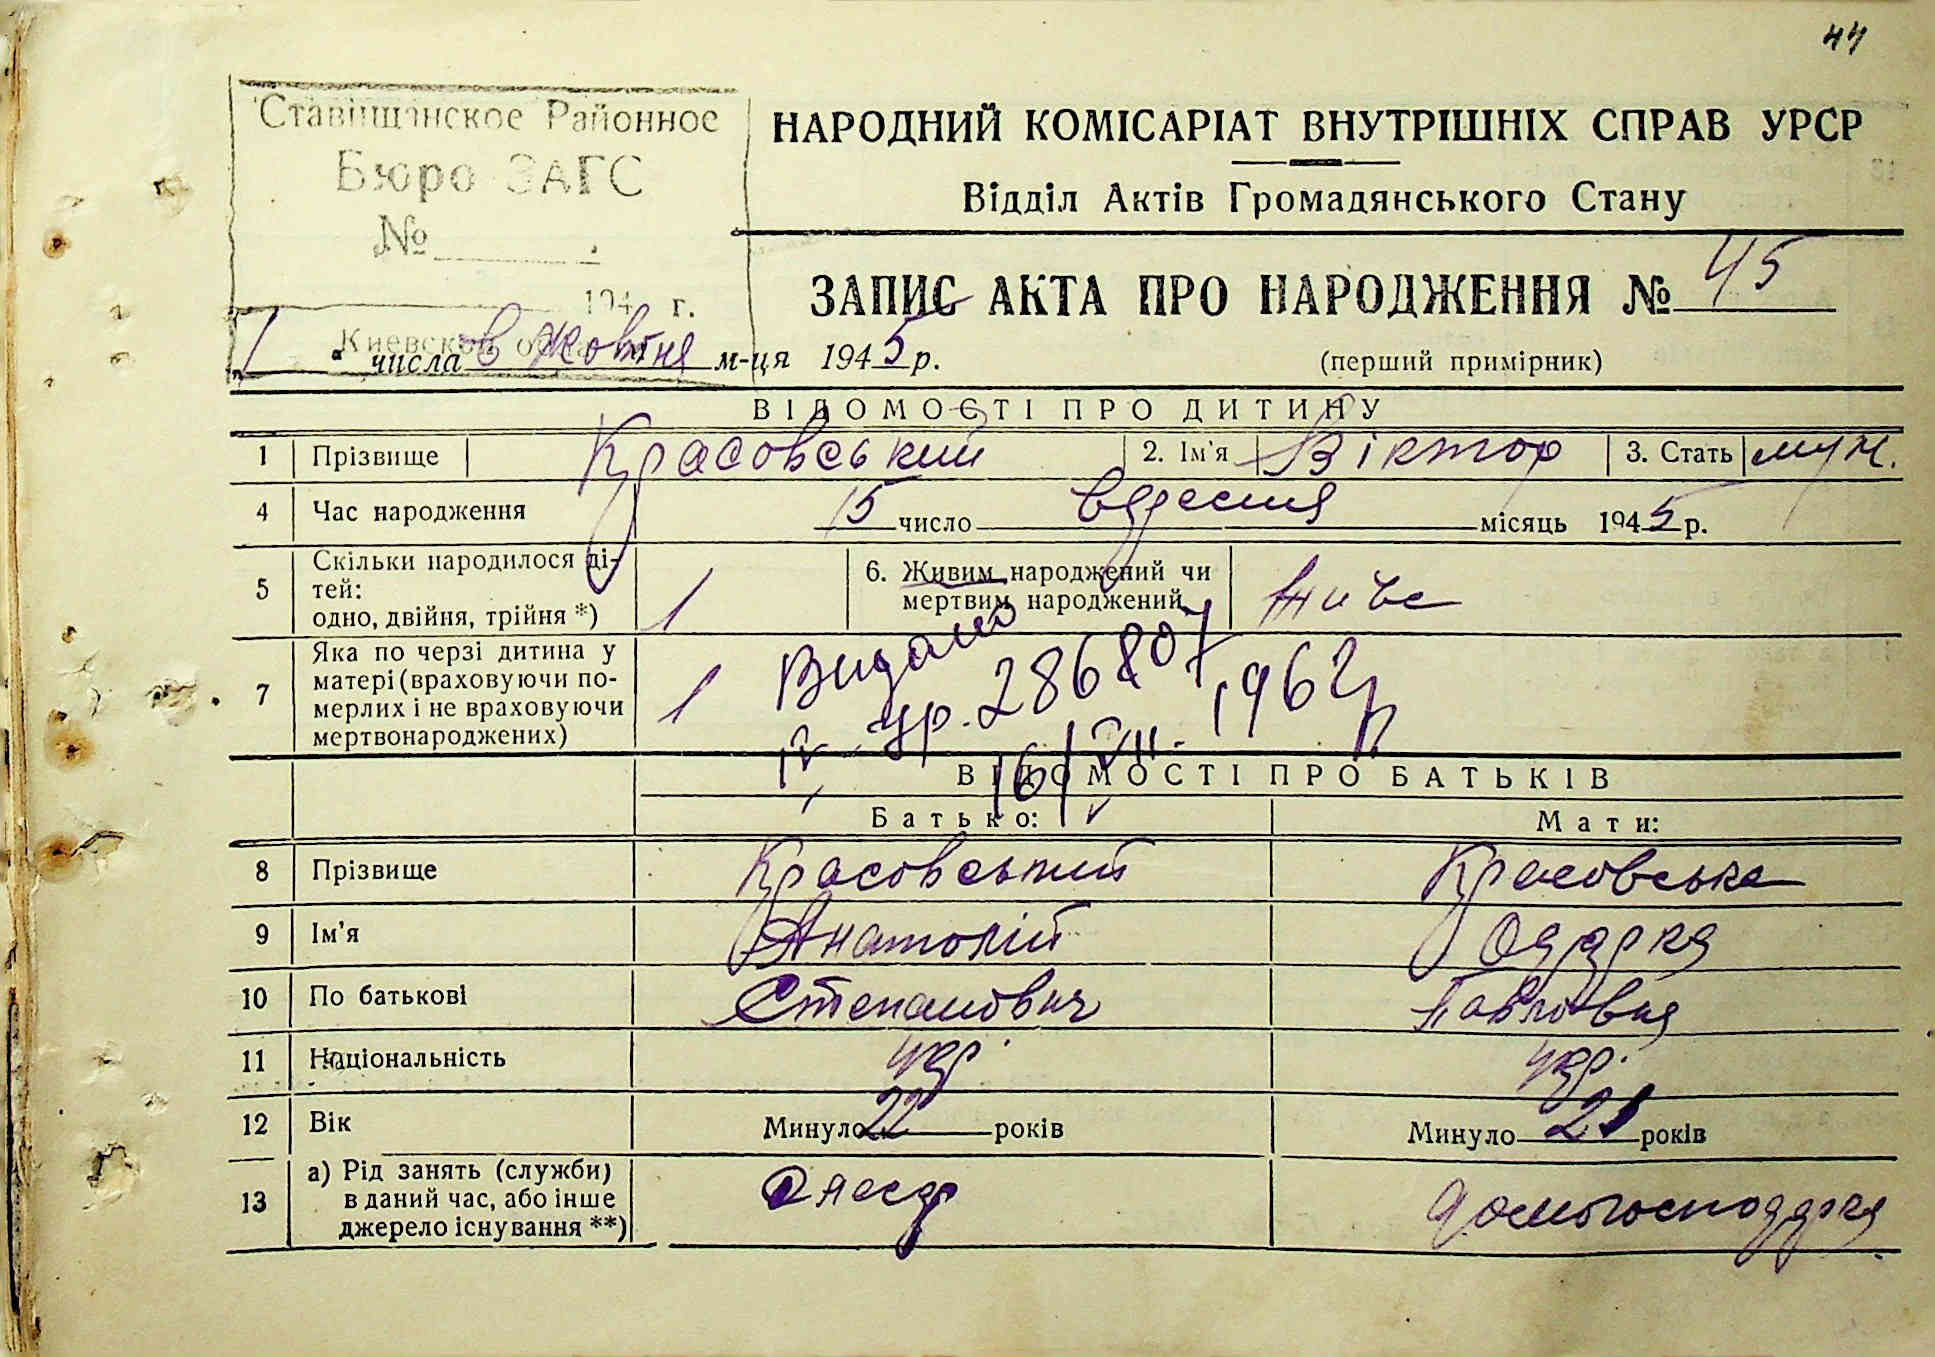 44
Ставищанское Районное
Бюро ЗАГС
№
194 г.
Киевской обла
НАРОДНИЙ КОМІСАРІАТ ВНУТРІШНІХ СПРАВ УРСР
Відділ Актів Громадянського Стану
ЗАПИС АКТА ПРО НАРОДЖЕННЯ № 45
1 " числа жовтня м-ця 1945 р.
(перший примірник)
ВІДОМОСТІ ПРО ДИТИНУ
1 Прізвище Красовський 2. Ім'я Віктор 3. Стать муж.
4 Час народження 15 число вересня місяць 1945 р.
5 Скільки народилося ді-
тей:
одно, двійня, трійня *) 1
6. Живим народжений чи
мертвим народжений
Живе
7 Яка по черзі дитина у
матері (враховуючи по-
мерлих і не враховуючи
мертвонароджених) 1
Видано
286807
16/VII. 1962р
ВІДОМОСТІ ПРО БАТЬКІВ
Батько: Мати:
8 Прізвище Красовський Красовська
9 Ім'я Анатолій Одарка
10 По батькові Степанович Павловна
11 Національність укр. укр.
12 Вік Минуло 22 років Минуло 21 років
13 а) Рід занять (служби)
в даний час, або інше
джерело існування **)
домогосподарка